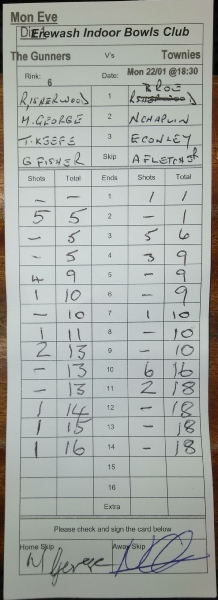 Mon Eve
Erewash Indoor Bowls Club
The Gunners V's Townies
Rink: 6 Date: Mon 22/01 @18:30
R,ISHERWOOD 1 BROE
M.GEORGE 2 N CHAPLIN
T.KEEFE 3 E CONLEY
G FISHER Skip A FLETCHER
Shots Total Ends Shots Total
- - 1 1 1
5 5 2 - 1
- 5 3 5 6
- 5 4 3 9
4 9 5 - 9
1 10 6 - 9
- 10 7 1 10
1 11 8 - 10
2 13 9 - 10
- 13 10 6 16
- 13 11 2 18
1 14 12 - 18
1 15 13 - 18
1 16 14 - 18
15
16
Extra
Please check and sign the card below
Home Skip Away Skip
M George